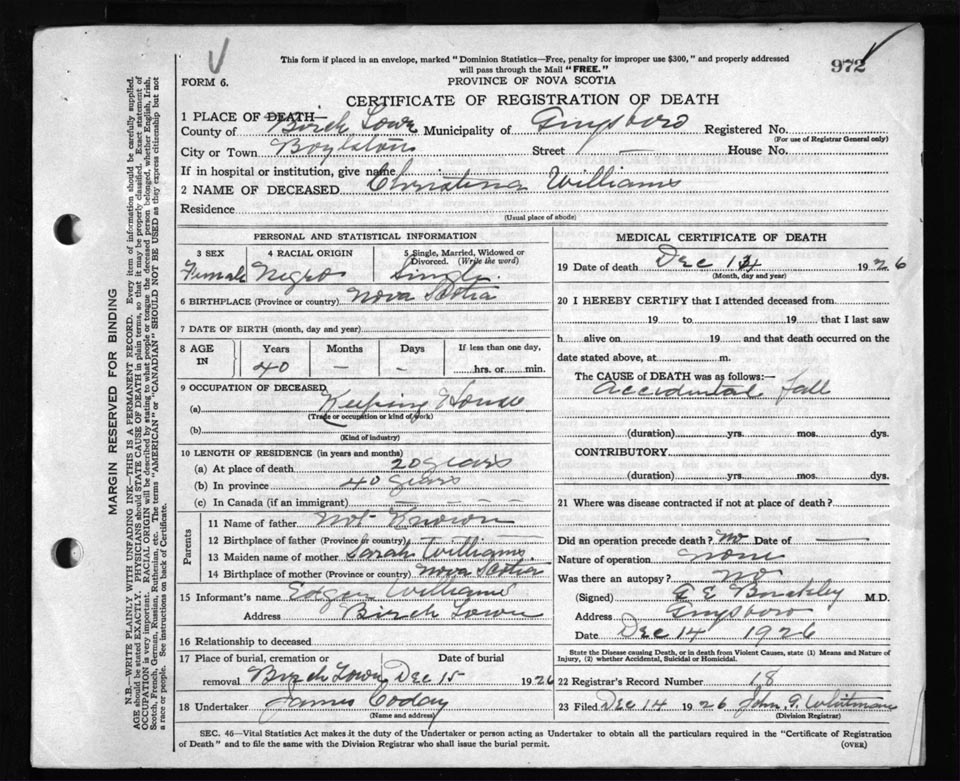 This form if placed in an envelope, marked "Dominion Statistics—Free, penalty for improper use $300," and properly addressed
will pass through the Mail "FREE."
972
FORM 6.
PROVINCE OF NOVA SCOTIA
CERTIFICATE OF REGISTRATION OF DEATH
1 PLACE OF DEATH—
County of Birch Town Municipality of Guysboro Registered No.
(For use of Registrar General only)
City or Town Boylston Street — House No.
If in hospital or institution, give name
2 NAME OF DECEASED Christina Williams
Residence
(Usual place of abode)
PERSONAL AND STATISTICAL INFORMATION
3 SEX 4 RACIAL ORIGIN 5 Single, Married, Widowed or Divorced. (Write the word)
Female Negro Single.
6 BIRTHPLACE (Province or country) Nova Scotia
7 DATE OF BIRTH (month, day and year)
8 AGE IN Years Months Days If less than one day,
40 — — hrs. or min.
9 OCCUPATION OF DECEASED
(a) Keeping House
(Trade or occupation or kind of work)
(b)
(Kind of industry)
10 LENGTH OF RESIDENCE (in years and months)
(a) At place of death 20 years
(b) In province 40 years
(c) In Canada (if an immigrant) — — —
Parents
11 Name of father Not Known
12 Birthplace of father (Province or country) — — —
13 Maiden name of mother Sarah Williams.
14 Birthplace of mother (Province or country) Nova Scotia
15 Informant's name Edgar Williams
Address Birch Town
16 Relationship to deceased
17 Place of burial, cremation or removal Date of burial
Birch Town Dec 15 1926
18 Undertaker James Coday
(Name and address)
MEDICAL CERTIFICATE OF DEATH
19 Date of death Dec 1926
(Month, day and year)
20 I HEREBY CERTIFY that I attended deceased from
19 to 19 that I last saw
h alive on 19 and that death occurred on the
date stated above, at m.
The CAUSE of DEATH was as follows:—
Accidental fall
(duration) yrs. mos. dys.
CONTRIBUTORY
(duration) yrs. mos. dys.
21 Where was disease contracted if not at place of death?
Did an operation precede death? No Date of —
Nature of operation none
Was there an autopsy? no
(Signed) G E Buckley M.D.
Address Guysboro
Date Dec 14 1926
State the Disease causing Death, or in death from Violent Causes, state (1) Means and Nature of
Injury, (2) whether Accidental, Suicidal or Homicidal.
22 Registrar's Record Number 18
23 Filed Dec 14 1926 John G. Whitman
(Division Registrar)
SEC. 46—Vital Statistics Act makes it the duty of the Undertaker or person acting as Undertaker to obtain all the particulars required in the "Certificate of Registration
of Death" and to file the same with the Division Registrar who shall issue the burial permit. (OVER)
MARGIN RESERVED FOR BINDING
N.B.—WRITE PLAINLY WITH UNFADING INK—THIS IS A PERMANENT RECORD. Every item of information should be carefully supplied.
AGE should be stated EXACTLY. PHYSICIANS should STATE CAUSE OF DEATH in plain terms, so that it may be properly classified. Exact statement of
OCCUPATION is very important. RACIAL ORIGIN will be described by stating to what people or tongue the deceased person belonged, whether English, Irish,
Scotch, French, German, Russian, Ruthenian, etc. The terms "AMERICAN" or "CANADIAN" SHOULD NOT BE USED as they express citizenship but not
a race or people. See instructions on back of Certificate.